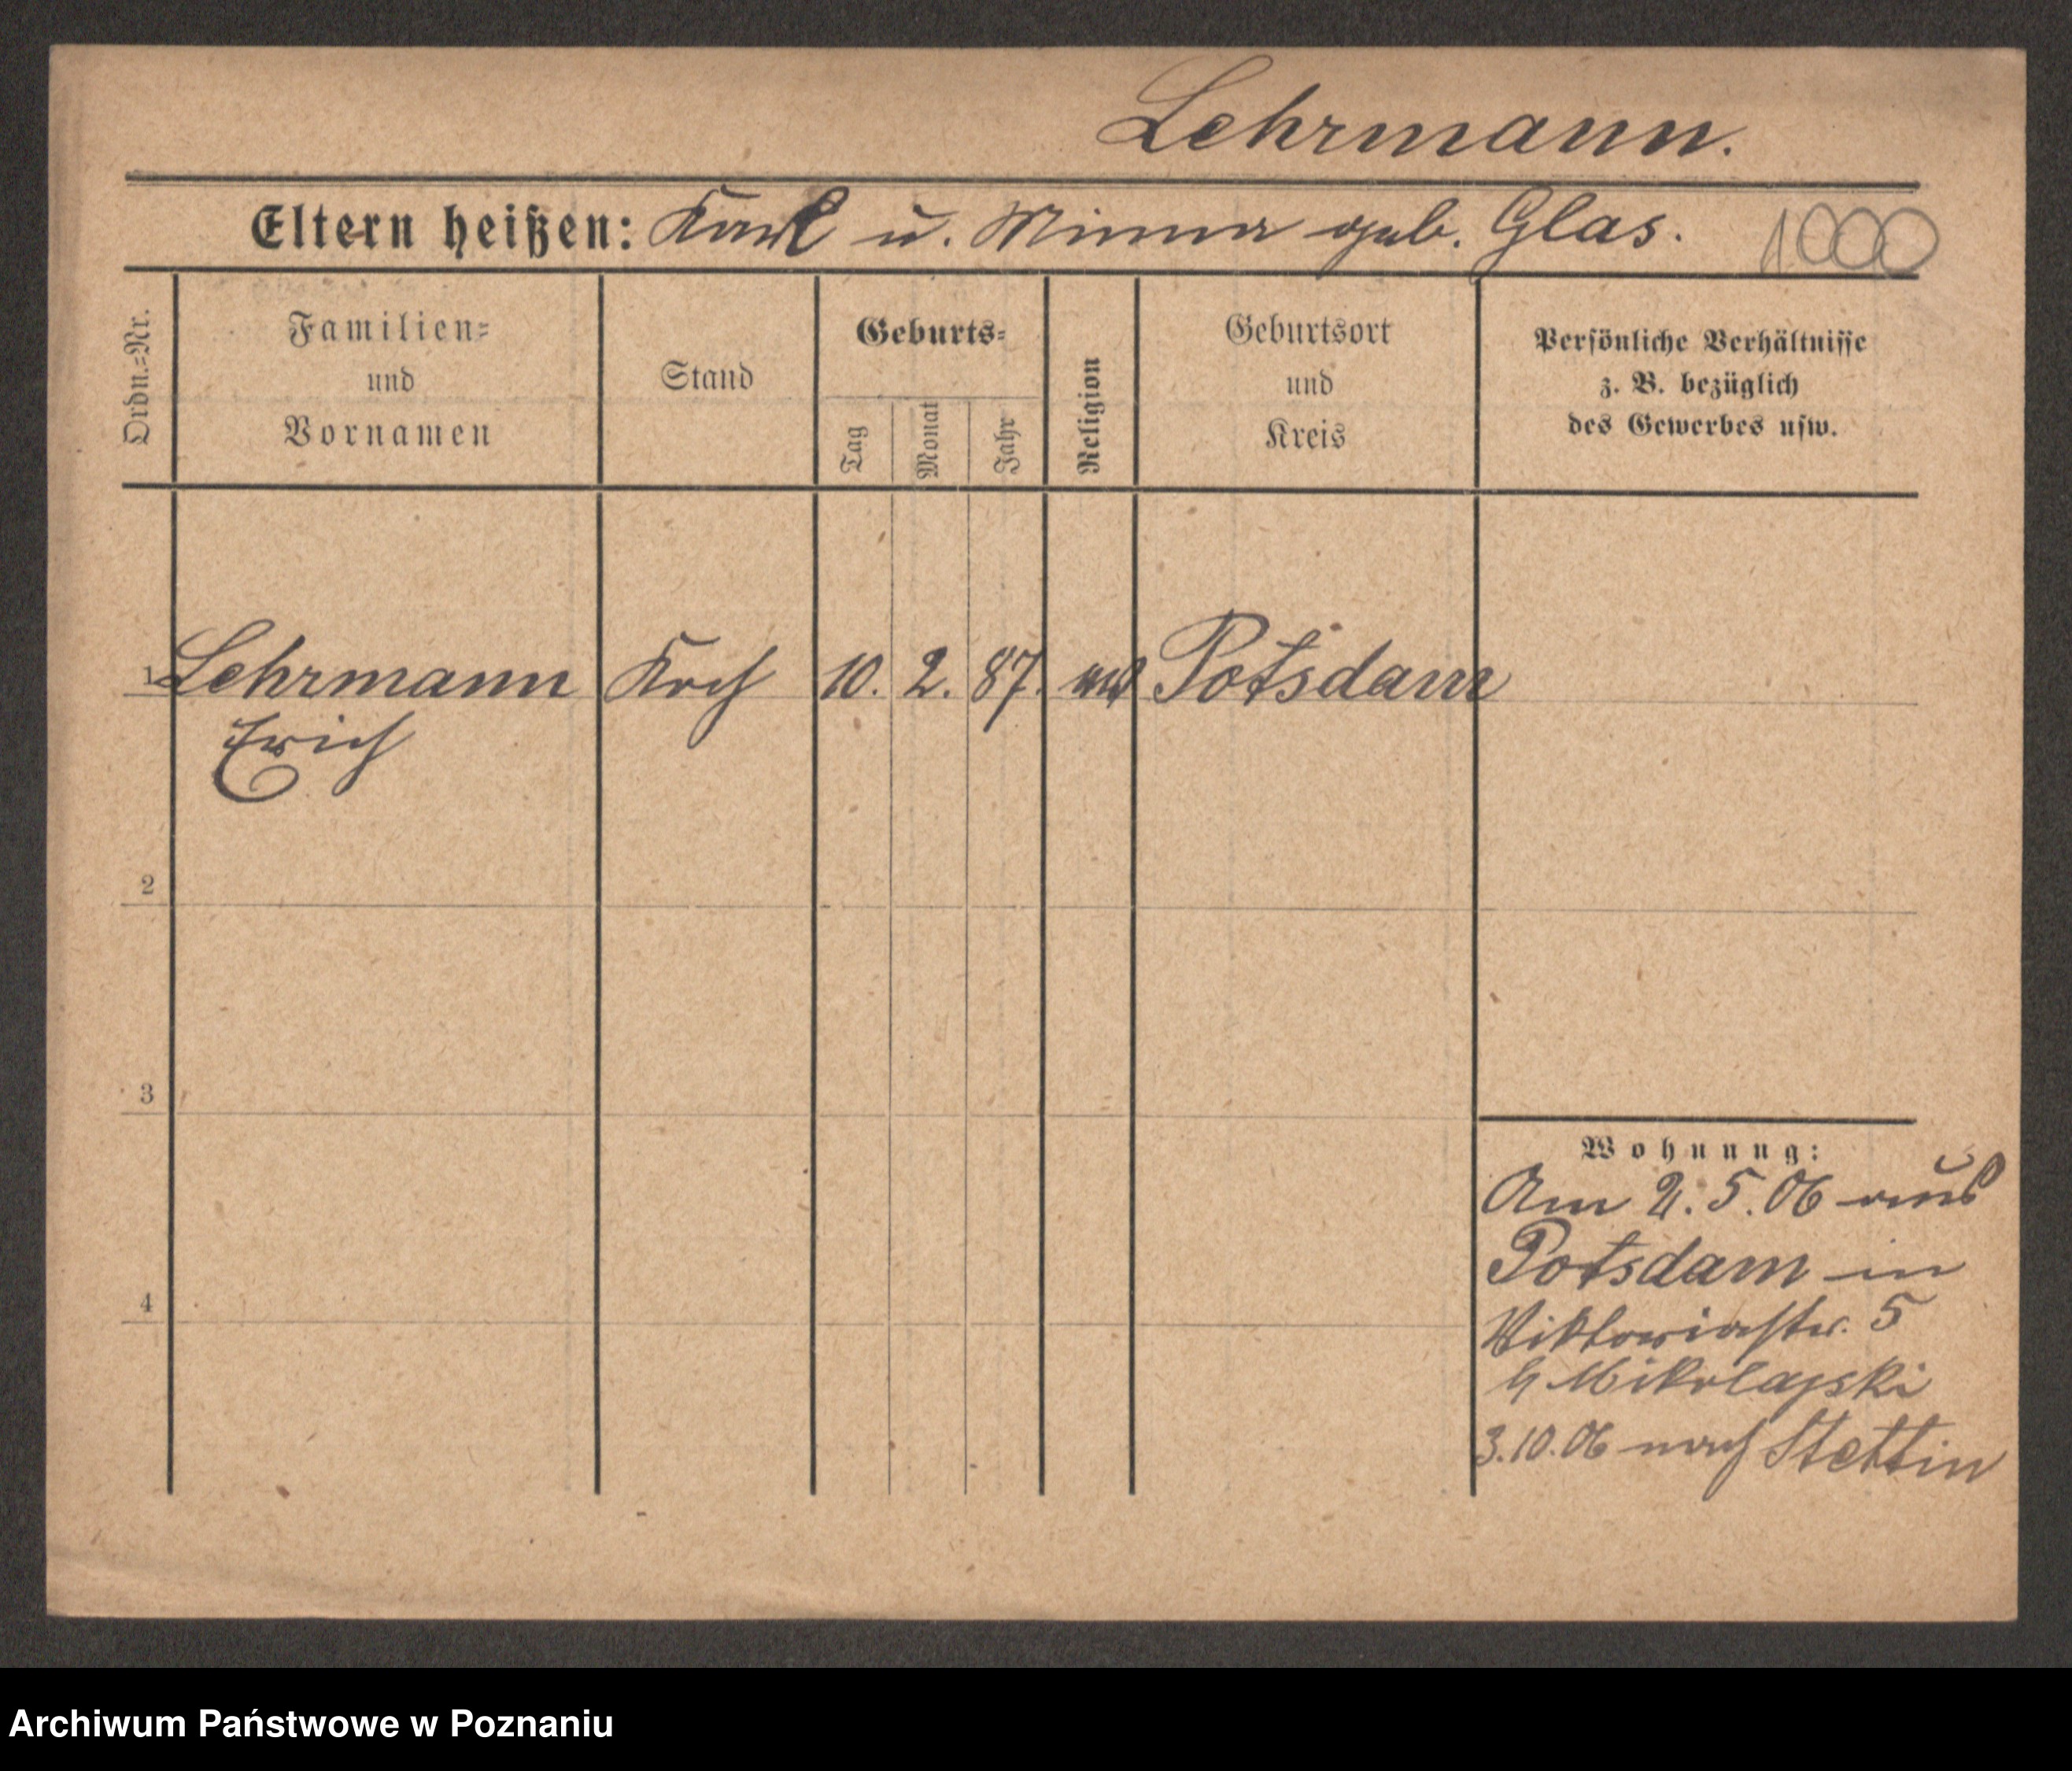 Lehrmann.
Eltern heißen: Karl u. Minna geb. Glas. 1000
Ordn.=Nr.
Familien=
und
Vornamen
Stand
Geburts=
Tag
Monat
Jahr
Religion
Geburtsort
und
Kreis
Persönliche Verhältnisse
z. B. bezüglich
des Gewerbes usw.
1 Lehrmann Koch 10. 2. 87. Potsdam
Erich
2
3
4
Wohnung:
Am 2.5.06 aus
Potsdam in
Viktoriastr. 5
Mikolajski
3.10.06 nach Stettin
Archiwum Państwowe w Poznaniu